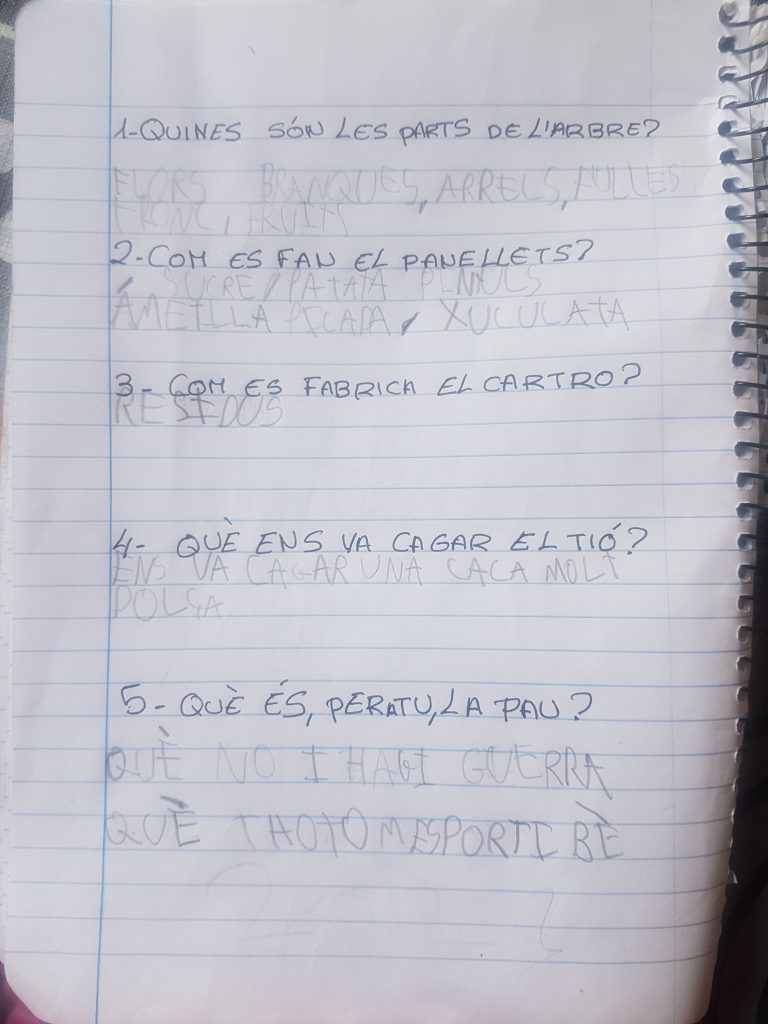 1-QUINES SÓN LES PARTS DE L'ARBRE?
FLORS BRANQUES, ARRELS, FULLES
TRONC, FRUITS
2-COM ES FAN EL PANELLETS?
SUCRE, PATATA PINYOLS
ÁMETLLA PICADA, XUCULATA
3- COM ES FABRICA EL CARTRO?
RESIDOS
4- QUÈ ENS VA CAGAR EL TIÓ?
ENS VA CAGAR UNA CACA MOLT
DOLÇA
5- QUÈ ÉS, PERATU, LA PAU?
QUÈ NO I HAGI GUERRA
QUÈ THOTOM ESPORTI BÈ